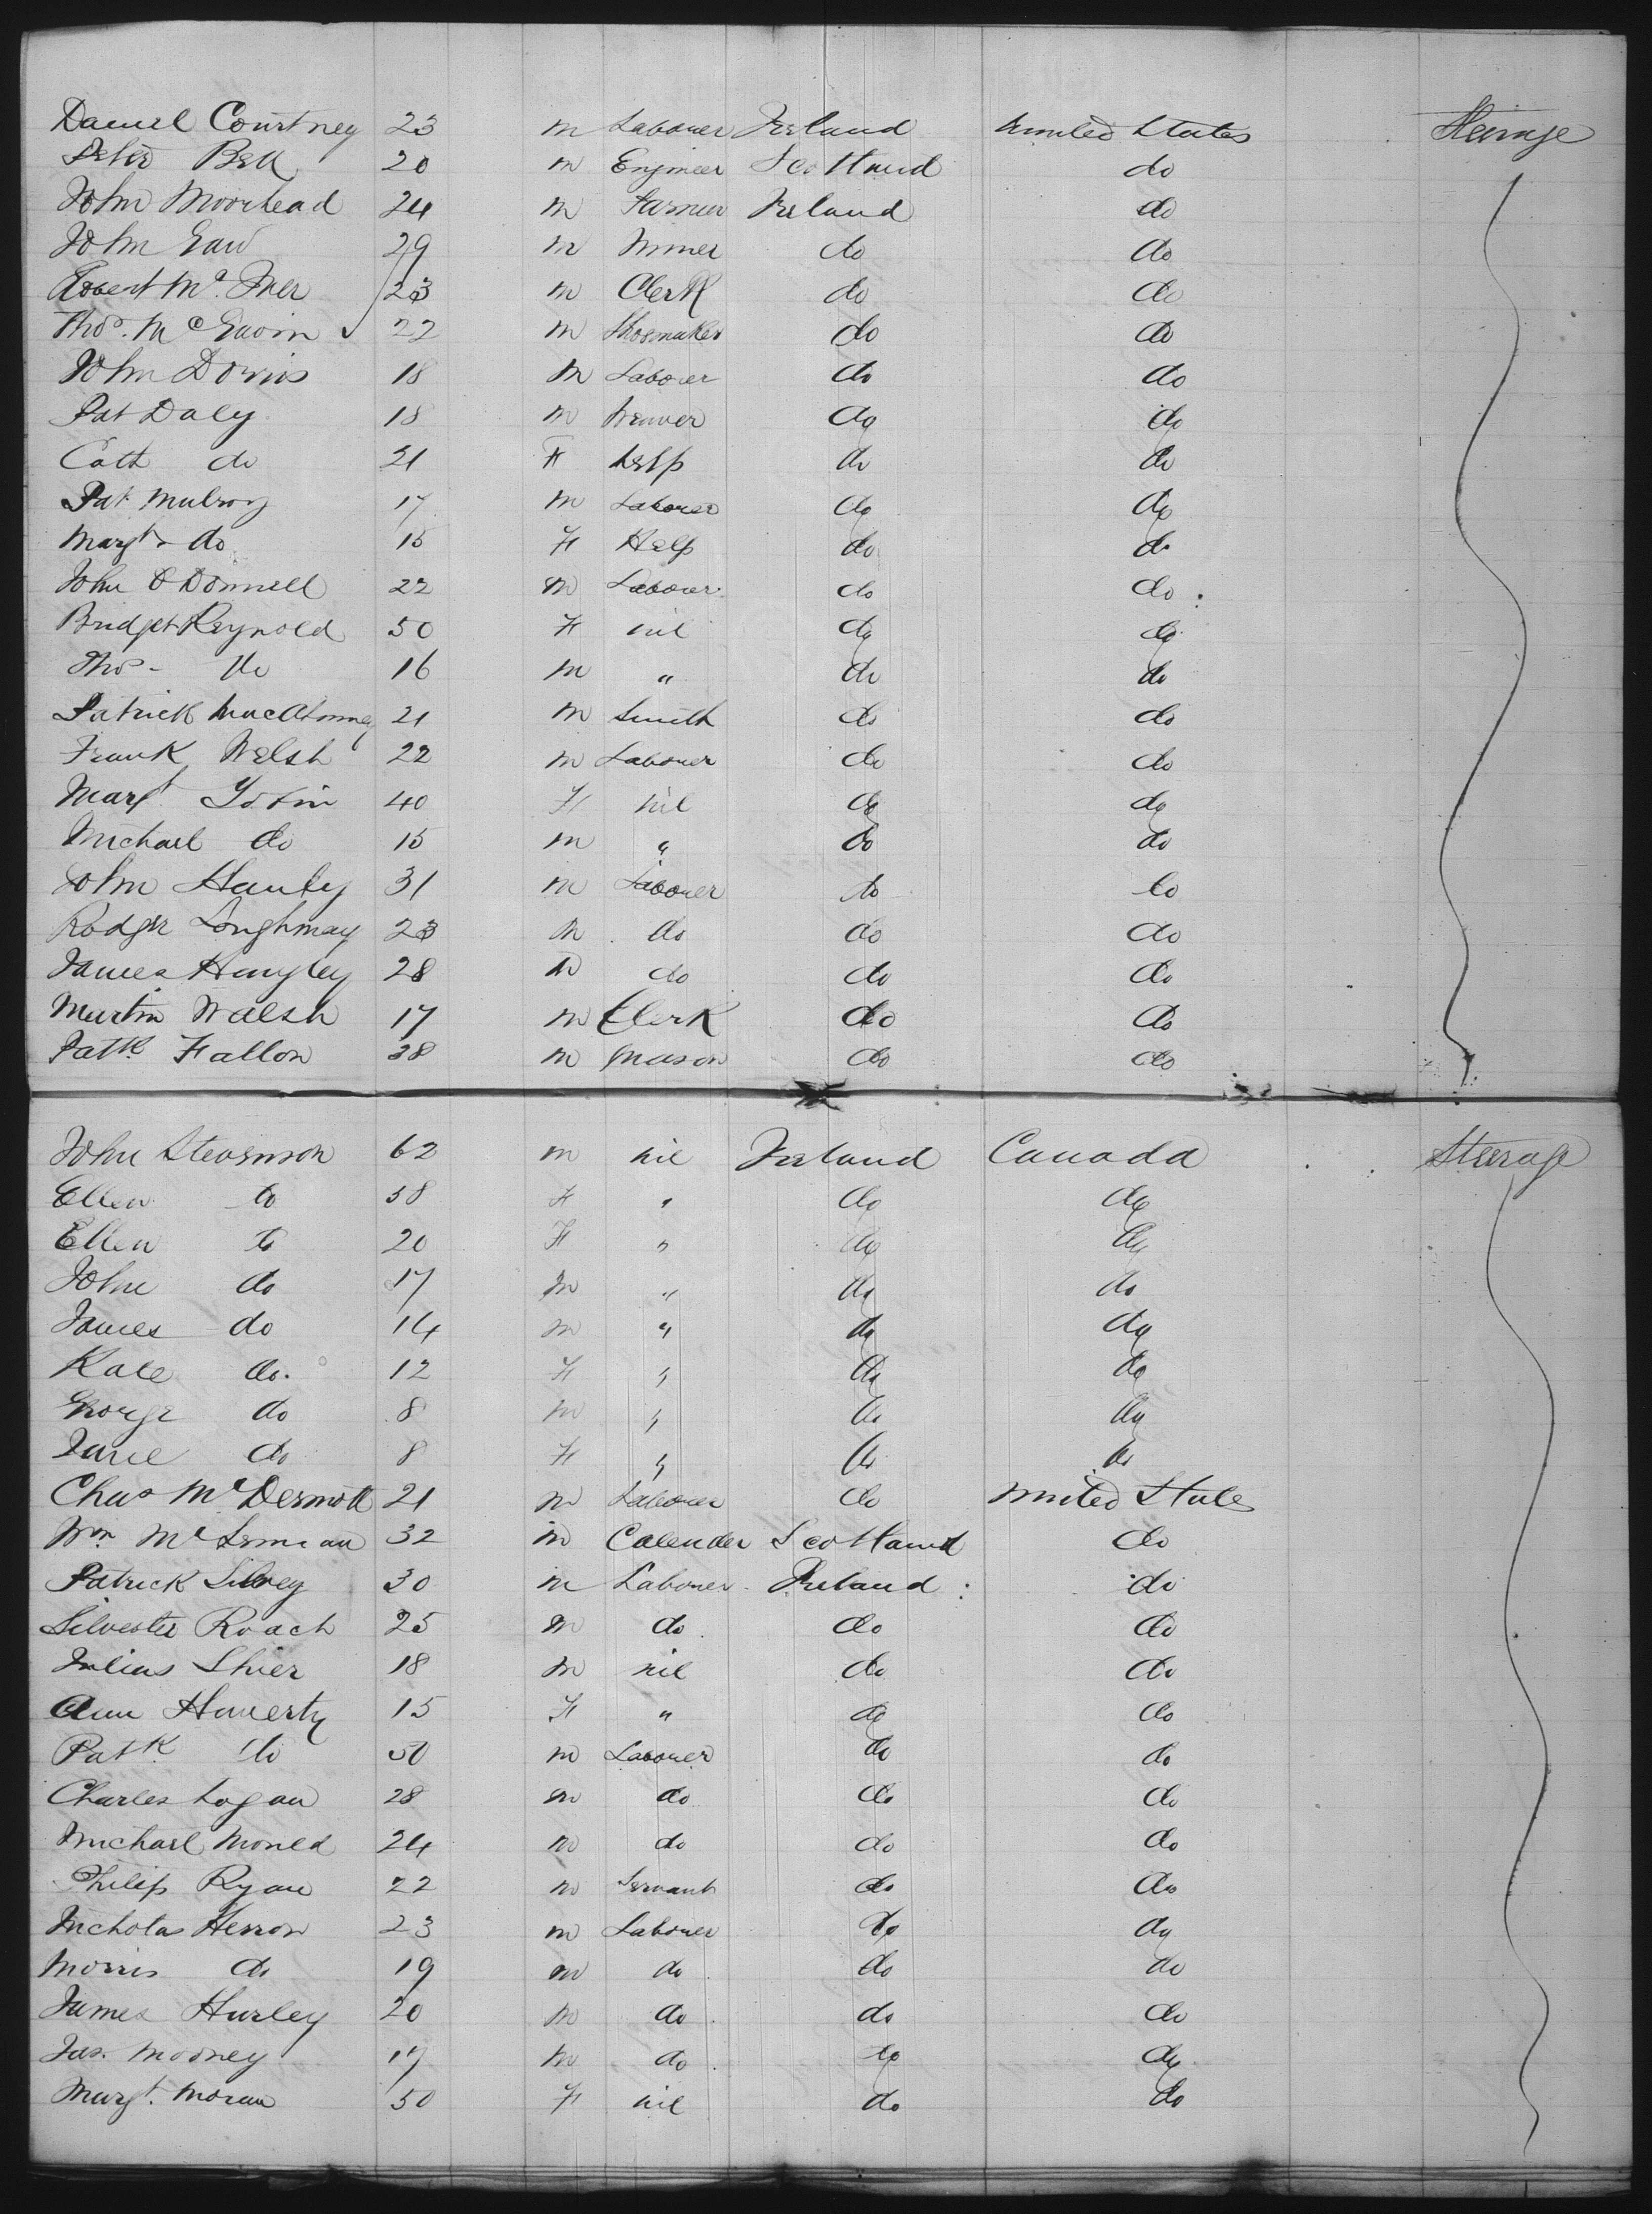 Daniel Courtney 23 m Labourer Ireland United States Steerage
Peter Bell 20 m Engineer Scotland do
John Moorhead 24 m Farmer Ireland do
John 29 m Miner do do
Robert 23 m Clerk do do
Thos. 22 m Shoemaker do do
John 18 m Labourer do do
Pat Daly 18 m Weaver do do
Cath do 21 F help do do
Pat Mulroy 17 m Labourer do do
Margt do 15 F Help do do
John O Donnell 22 m Labourer do do
Bridget Reynold 50 F nil do do
Thos - do 16 m " do do
Patrick 21 m Smith do do
Frank Welsh 22 m Labourer do do
Margt 40 F nil do do
Michael do 15 m " do do
John Hanley 31 m Labourer do do
Rodger 23 m do do do
James 28 m do do do
Martin Walsh 17 m Clerk do do
Patk Fallon 38 m Mason do do
John 62 m nil Ireland Canada Steerage
Ellen do 58 F " do do
Ellen do 20 F " do do
John do 17 m " do do
James do 14 m " do do
Kate do. 12 F " do do
George do 8 m " do do
Jane do 8 F " do do
Chas McDermott 21 m Labourer do United State
Wm 32 m Calender Scotland do
Patrick 30 m Labourer Ireland do
Silvester Roach 25 m do do do
Julias Shier 18 m nil do do
Ann 15 F " do do
Patk do 50 m Labourer do do
Charles Logan 28 m do do do
Michael 24 m do do do
Philip Ryan 22 m Servant do do
Nicholas Herron 23 m Labourer do do
Morris do 19 m do do do
James Hurley 20 m do do do
Jas. Mooney 17 m do do do
Margt. Moran 50 F nil do do